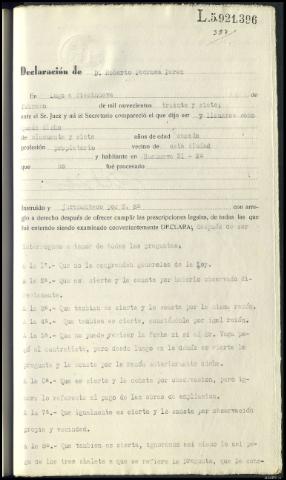 L.5.921.396
397
Declaración de D. Roberto Pedrosa Perez
En Lugo a diecinueve de
febrero de mil novecientos treinta y siete;
ante el Sr. Juez y mí el Secretario compareció el que dijo ser y llamarse como
queda dicho
de cincuenta y siete años de edad casado
profesión propietario vecino de esta ciudad
y habitante en 31 - 2º
que no fué procesado
Instruído y juramentado por S. Sª con arre-
glo a derecho después de ofrecer cumplir las prescripciones legales, de todas las que
fué enterado siendo examinado convenientemente DECLARA; después de ser
interrogado a tenor de todas las preguntas.
A la 1ª.- Que no le comprenden generales de la Ley.
A la 2ª.- Que es cierto y le consta por haberlo observado di-
rectamente.
A la 3ª.- Que tambien es cierto y le consta por la misma razón.
A la 4ª.- Que tambien es cierto, constándole por igual razón.
A la 5ª.- Que no puede precisar la fecha ni si el Sr. Vega pa-
gó al contratista, pero desde luego en lo demás es cierta la
pregunta y le consta por la razón anteriormente dicha.
A la 6ª.- Que es cierto y le consta por observacion, pero ig-
nora lo referente al pago de las obras de ampliacion.
A la 7ª.- Que igualmente es cierto y le consta por observación
propia y vecindad.
A la 8ª.- Que tambien es cierto, ignorando así mismo lo del pa-
go de los tres chalets a que se refiere la pregunta, que le cons-